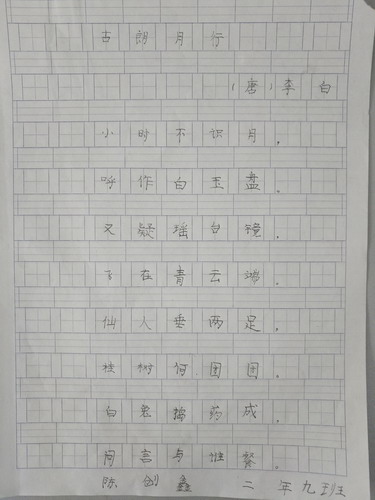 古朗月行
（唐）李白
小时不识月．
呼作白玉盘．
又疑瑶台镜．
飞在青云端．
仙人垂两足．
桂树何团团．
白兔捣药成．
问言与谁餐．
陈剑鑫 二年九班